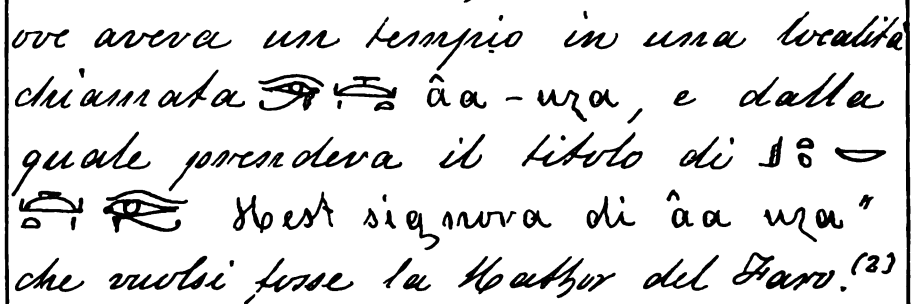 ove aveva un tempio in una località
chiamata 𓂀 âa-uza, e dalla
quale prendeva il titolo di
𓂀 Hest signora di âa uza"
che vuolsi fosse la Hathor del Faro.(2)